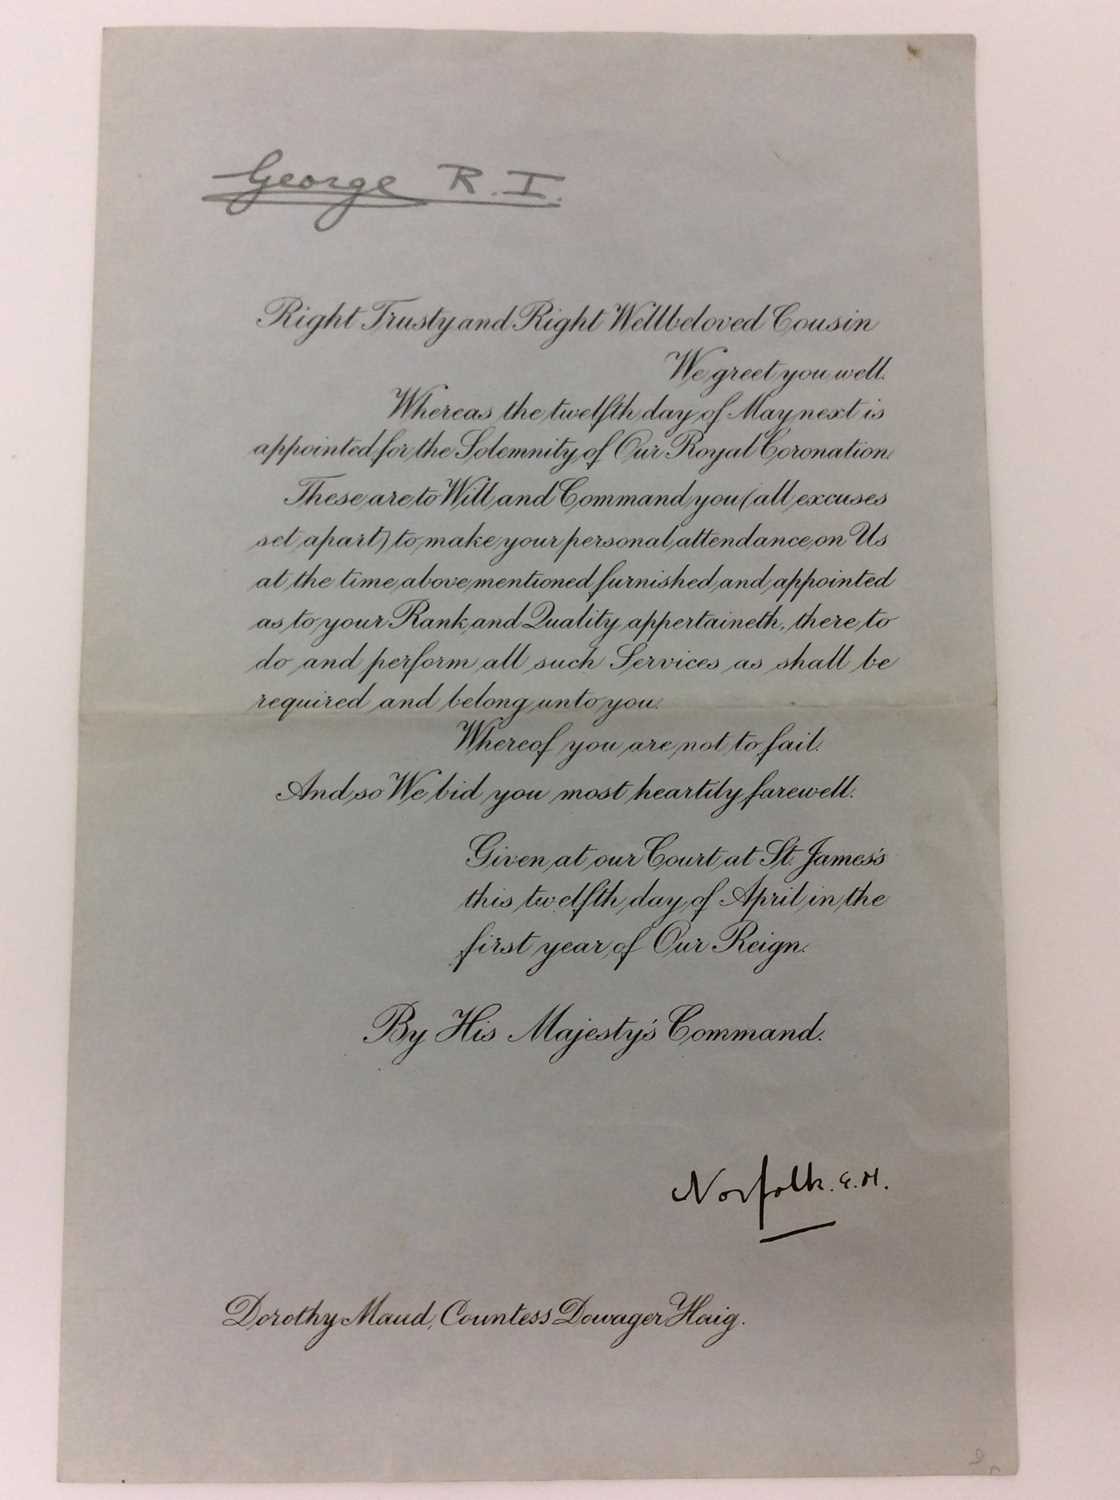 George R. I.
Right Trusty and Right Wellbeloved Cousin
We greet you well.
Whereas the twelfth day of May next is
appointed for the Solemnity of Our Royal Coronation.
These are to Will and Command you (all excuses
set apart) to make your personal attendance on Us
at the time above mentioned furnished and appointed
as to your Rank and Quality appertaineth, there to
do and perform all such Services as shall be
required and belong unto you.
Whereof you are not to fail.
And so We bid you most heartily farewell.
Given at our Court at St. James's
this twelfth day of April in the
first year of Our Reign.
By His Majesty's Command.
Norfolk. E.M.
Dorothy Maud, Countess Dowager Haig.